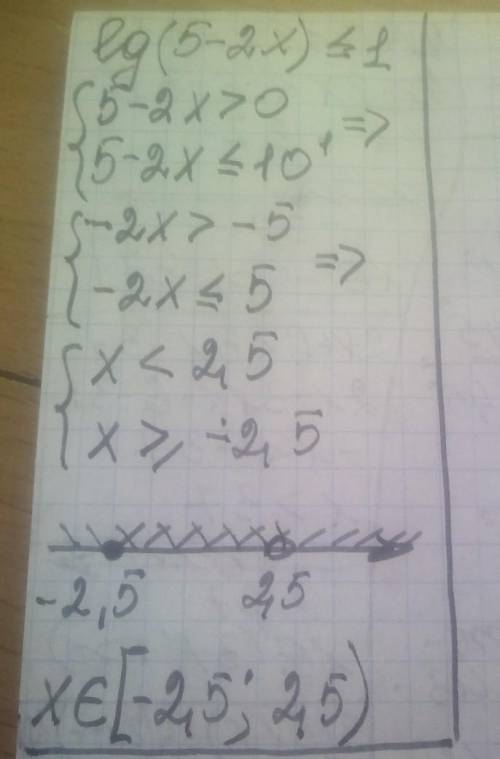 lg(5-2x) ≤ 1
{5-2x>0
{5-2x≤10¹ =>
{-2x>-5
{-2x≤5 =>
{x<2,5
{x⩾-2,5
-2,5 2,5
x∈[-2,5; 2,5)